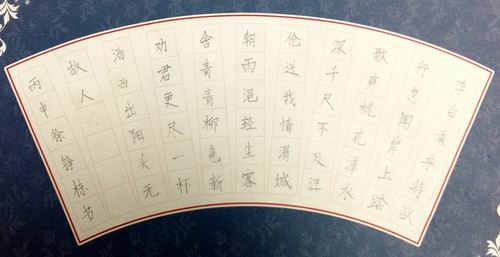 李白乘舟将欲
行忽闻岸上踏
歌声桃花潭水
深千尺不及汪
伦送我情渭城
朝雨浥轻尘客
舍青青柳色新
劝君更尽一杯
酒西出阳关无
故人
丙申徐铮栋书